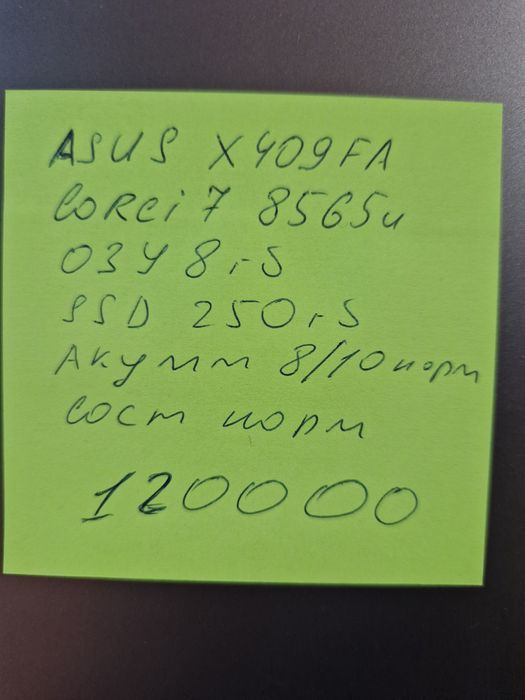 ASUS X409FA
Corei7 8565u
ОЗУ 8гб
SSD 250гб
Акумм 8/10 норм
Сост норм
120000